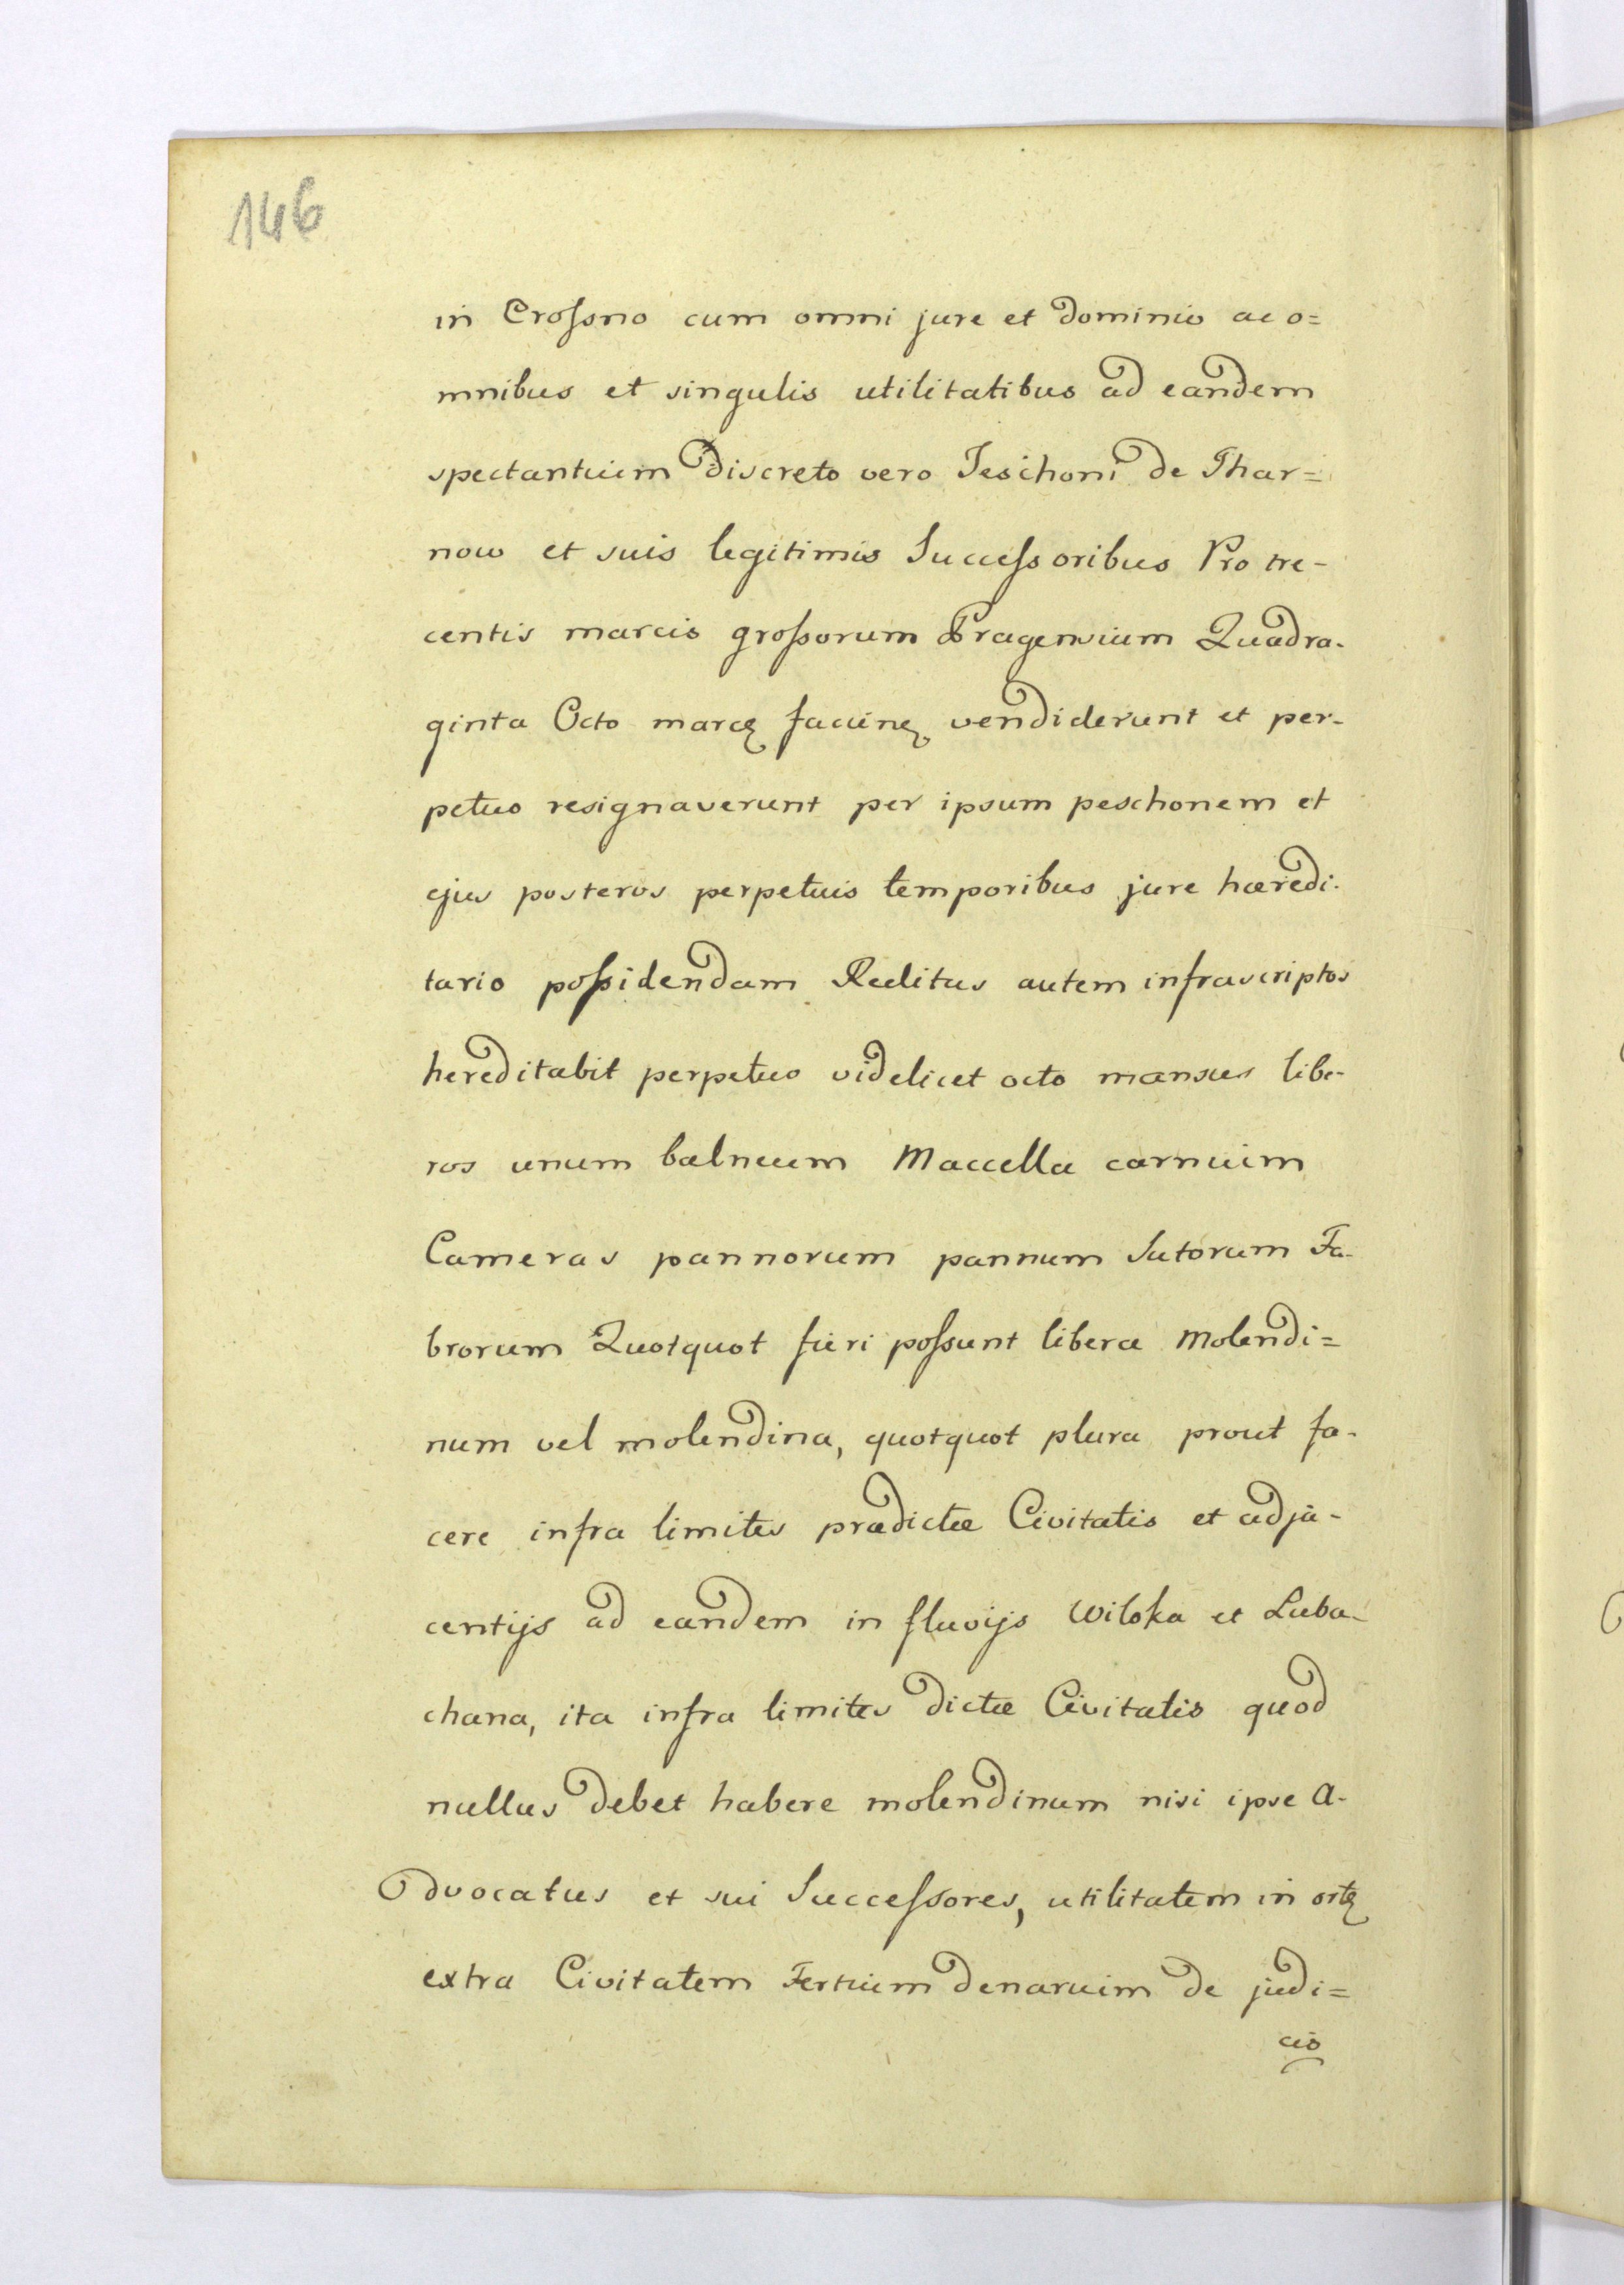 146
in Croſsno cum omni jure et dominio ac o=
mnibus et singulis utilitatibus ad eandem
spectantium discreto vero Jeschoni de Thar=
now et suis legitimis Succeſsoribus Pro tre-
centis marcis groſsorum Pragensium Quadra-
ginta Octo marcę faciunę vendiderunt et per-
petuo resignaverunt per ipsum peschonem et
ejus posteros perpetuis temporibus jure hæredi-
tario poſsidendam Reditus autem infrascriptos
hereditabit perpetuo videlicet octo mansus libe-
ros unum balneum Maccella carnium
Cameras pannorum pannum Sutorum Fa-
brorum Quotquot fieri poſsunt libera Molendi=
num vel molendina, quotquot plura prout fa-
cere infra limites prædictæ Civitatis et adja-
centijs ad eandem in fluvijs Wiloka et Luba-
chana, ita infra limites dictæ Civitatis quod
nullus debet habere molendinum nisi ipse A-
dvocatus et sui Succeſsores, utilitatem in ortę
extra Civitatem Tertium denarium de judi=
cio